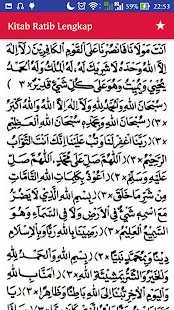 22:53
Kitab Ratib Lengkap
اَنْتَ مَوْلَانَا فَانْصُرْنَا عَلَى الْقَوْمِ الْكَافِرِيْنَ لَا اِلٰهَ
اِلَّا اللهُ وَحْدَهُ لَا شَرِيْكَ لَهُ لَهُ الْمُلْكُ وَلَهُ الْحَمْدُ
يُحْيِيْ وَيُمِيْتُ وَهُوَ عَلَى كُلِّ شَيْءٍ قَدِيْرٌ ×٣)
سُبْحَانَ اللهِ وَالْحَمْدُ لِلّٰهِ وَلَا اِلٰهَ اِلَّا اللهُ وَاللهُ اَكْبَرُ
×٣) سُبْحَانَ اللهِ وَبِحَمْدِهِ سُبْحَانَ اللهِ الْعَظِيْمِ
×٣) رَبَّنَا اغْفِرْ لَنَا وَتُبْ عَلَيْنَا اِنَّكَ اَنْتَ التَّوَّابُ
الرَّحِيْمُ ×٣) اَللّٰهُمَّ صَلِّ عَلَى مُحَمَّدٍ، اَللّٰهُمَّ صَلِّ
عَلَيْهِ وَسَلِّمْ ×٣) اَعُوْذُ بِكَلِمَاتِ اللهِ التَّامَّاتِ
مِنْ شَرِّ مَا خَلَقَ ×٣) بِسْمِ اللهِ الَّذِيْ لَا يَضُرُّ مَعَ
اسْمِهِ شَيْءٌ فِي الْاَرْضِ وَلَا فِي السَّمَاءِ وَهُوَ
السَّمِيْعُ الْعَلِيْمُ ×٣) رَضِيْنَا بِاللهِ رَبًّا وَبِالْاِسْلَامِ
دِيْنًا وَبِمُحَمَّدٍ نَبِيًّا ×٣) بِسْمِ اللهِ وَالْحَمْدُ لِلّٰهِ
وَالْخَيْرُ وَالشَّرُّ بِمَشِيْئَةِ اللهِ ×٣) اٰمَنَّا بِاللهِ
وَالْيَوْمِ الْاٰخِرِ تُبْنَا اِلَى اللهِ بَاطِنًا وَظَاهِرًا ×٣) يَا